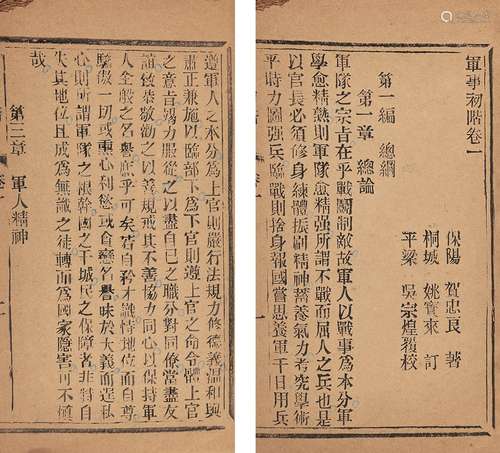 軍事初階卷一
保陽 賀忠良 著
桐城 姚寳來 訂
平梁 吳宗煌 覆校
第一編 總綱
第一章 總論
軍隊之宗旨在乎戰鬬制敵故軍人以戰事爲本分軍
學愈精興則軍隊愈精强所謂不戰而屈人之兵也是
以官長必須修身練體振刷精神蓄養氣力考究學術
平時力圖强兵臨戰則捨身報國嘗思養軍千日用兵
遵軍人之本分爲上官則嚴行法規力修德義溫和與
肅正兼施以臨部下爲下官則遵上官之命令體上官
之意旨竭力服從之以盡自己之職分對同僚當盡友
誼致恭敬勸之以善規戒其不善協力同心以保持軍
人全般之名譽庶乎可矣若自矜才識恃地位而自尊
驕傲一切或重心利慾或貪戀名譽昧於大義而逞私
心則所謂軍隊之根幹國之干城民之保障者非特自
失其地位且成爲無識之徒轉而爲國家隱害可不愼
哉
第三章 軍人精神